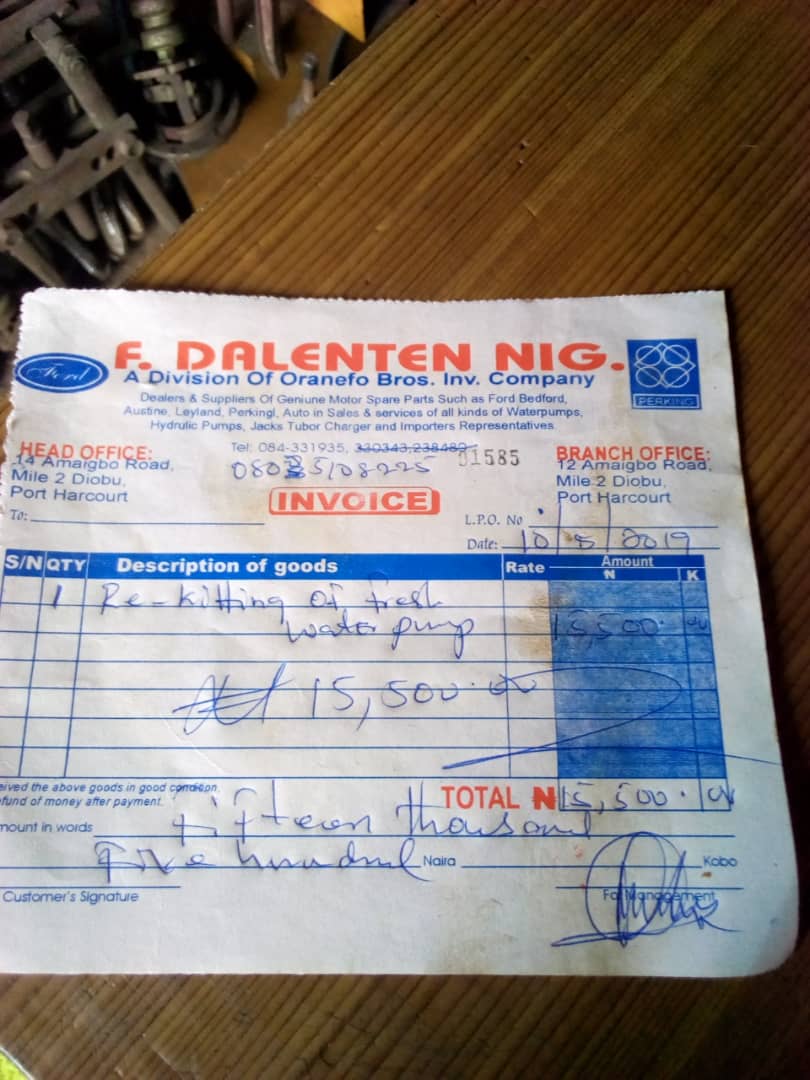 Ford
F. DALENTEN NIG.
A Division Of Oranefo Bros. Inv. Company
PERKING
Dealers & Suppliers Of Geniune Motor Spare Parts Such as Ford Bedford,
Austine, Leyland, Perkingl, Auto in Sales & services of all kinds of Waterpumps,
Hydrulic Pumps, Jacks Tubor Charger and Importers Representatives.
HEAD OFFICE:
14 Amaigbo Road,
Mile 2 Diobu,
Port Harcourt
Tel: 084-331935, 330343,238482
01585
BRANCH OFFICE:
12 Amaigbo Road,
Mile 2 Diobu,
Port Harcourt
INVOICE
To:
L.P.O. No
Date: 10/5/2019
S/N QTY Description of goods Rate Amount
₦ K
1 Re-kitting of fresh
water pump 15,500.00
15,500.00
eived the above goods in good condition.
fund of money after payment.
TOTAL ₦ 15,500.00
mount in words fifteen thousand
Five hundred Naira Kobo
Customer's Signature
For Management